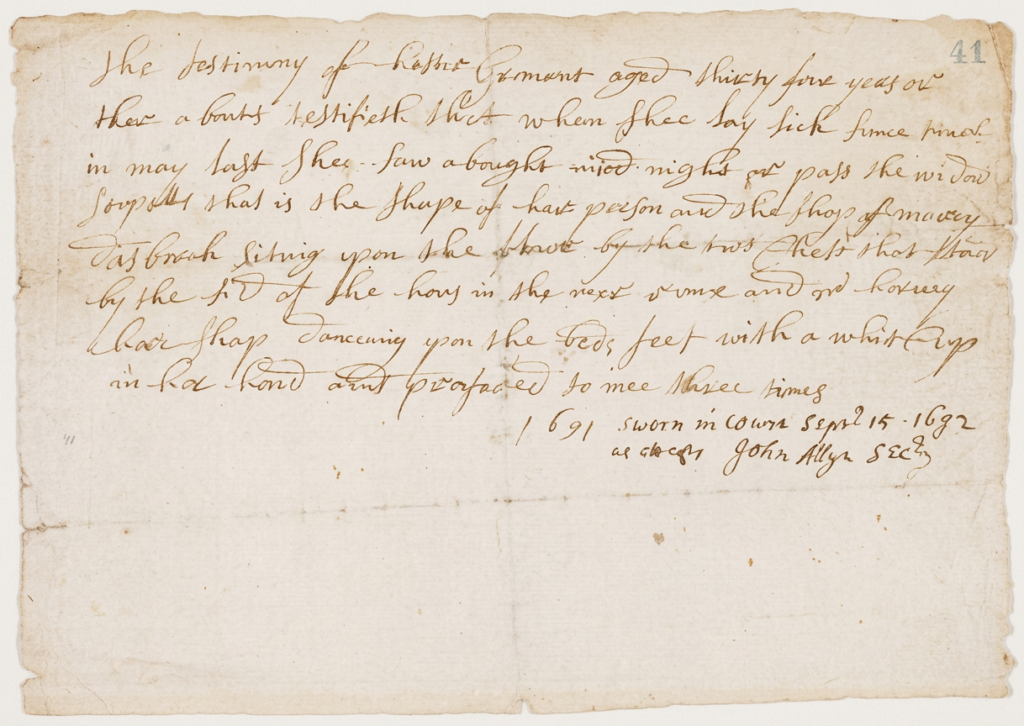 41
the testimony of hester Gromant aged thirty five years or
ther abouts testifieth that when shee lay sick sume time
in may last shee saw a bought mid night or pass the widow
that is the shape of har person and the shap of marey
sitnig upon the by the two Chests that
by the sid of the hous in the rume and harvey
har shap danceing upon the beds feet with a whit Cup
in har hand and to mee three times
1691 sworn in Court Sept 15 . 1692
as John Allyn Secry
41